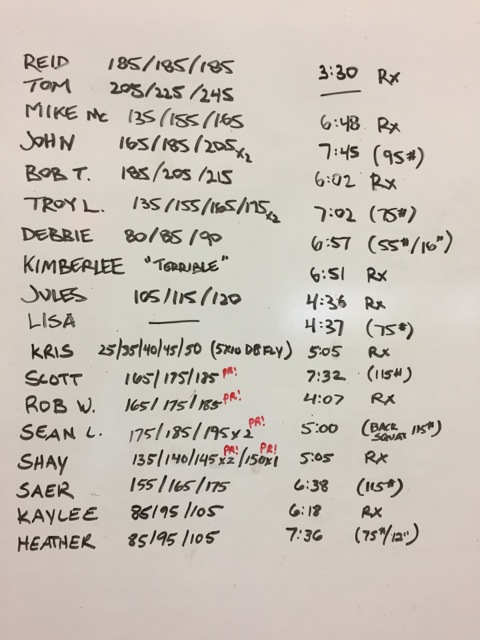 REID 185/185/185 3:30 Rx
TOM 205/225/245 —
MIKE Mc 135/155/165 6:48 Rx
JOHN 165/185/205x2 7:45 (95#)
BOB T. 185/205/215 6:02 Rx
TROY L. 135/155/165/175x2 7:02 (75#)
DEBBIE 80/85/90 6:57 (55#/16")
KIMBERLEE "TERRIBLE" 6:51 Rx
JULES 105/115/120 4:36 Rx
LISA — 4:37 (75#)
KRIS 25/35/40/45/50 (5x10 DB FLY) 5:05 Rx
SCOTT 165/175/185 PR! 7:32 (115#)
ROB W. 165/175/185 PR! 4:07 Rx
SEAN L. 175/185/195x2 PR! 5:00 (BACK SQUAT 115#)
SHAY 135/140/145x2 PR!/150x1 PR! 5:05 Rx
SAER 155/165/175 6:38 (115#)
KAYLEE 85/95/105 6:18 Rx
HEATHER 85/95/105 7:36 (75#/12")